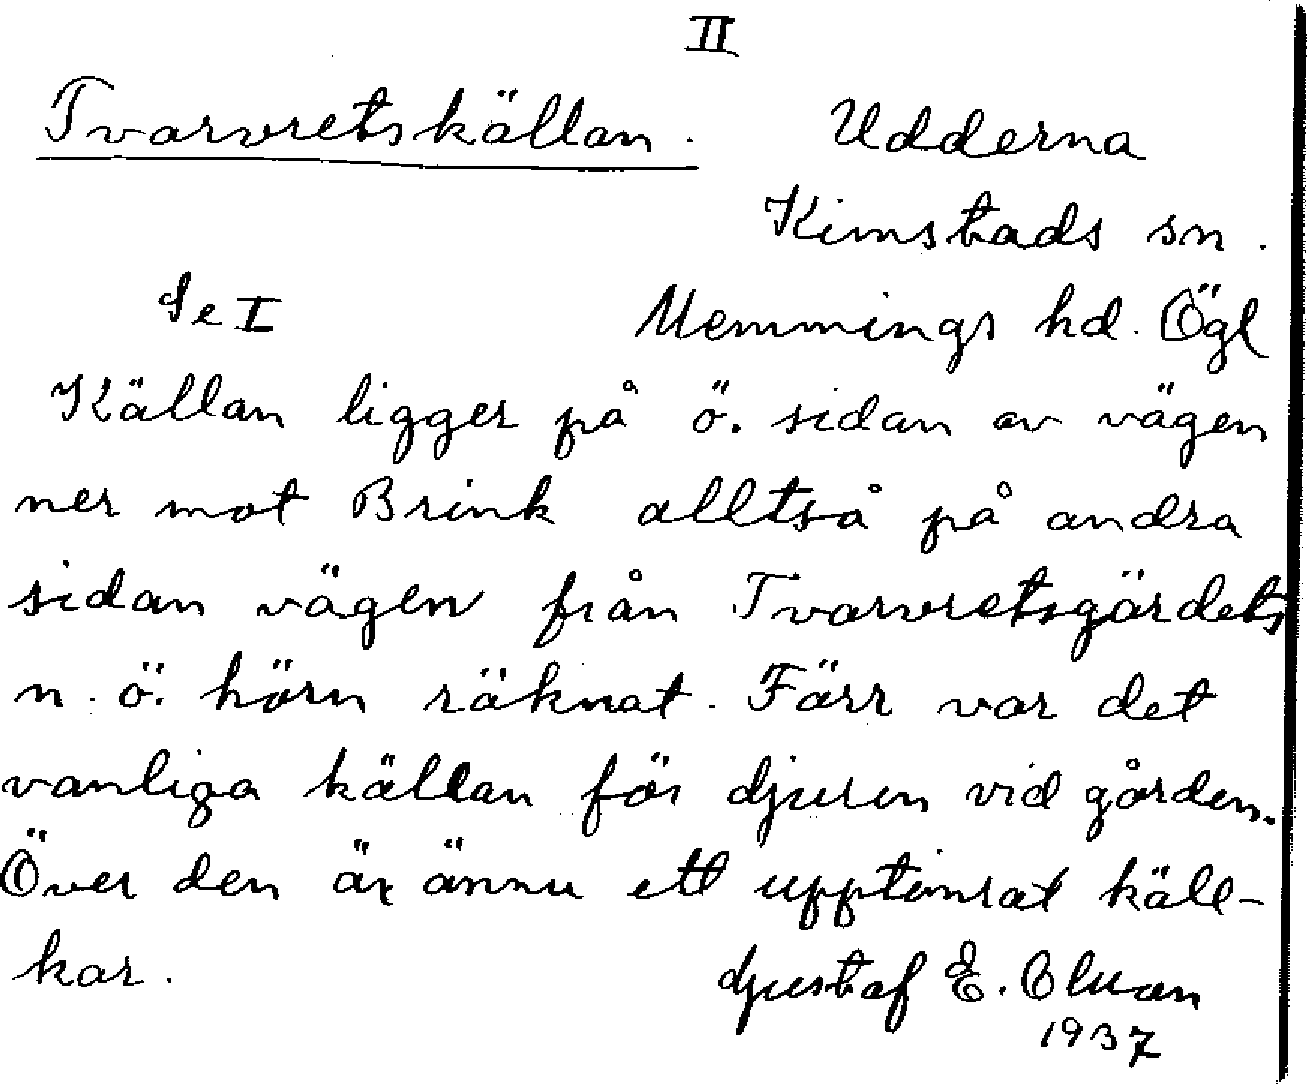 II
Tvarvretskällan. Udderna
Kimstads sn.
Se I Memmings hd. Ögl
Källan ligger på ö. sidan av vägen
ner mot Brink alltså på andra
sidan vägen från Tvarvretsgärdets
n. ö. hörn räknat. Färr var det
vanliga källan för djuren vid gården.
Över den är ännu ett upptimrat käll-
kar. Gustaf E.
1937